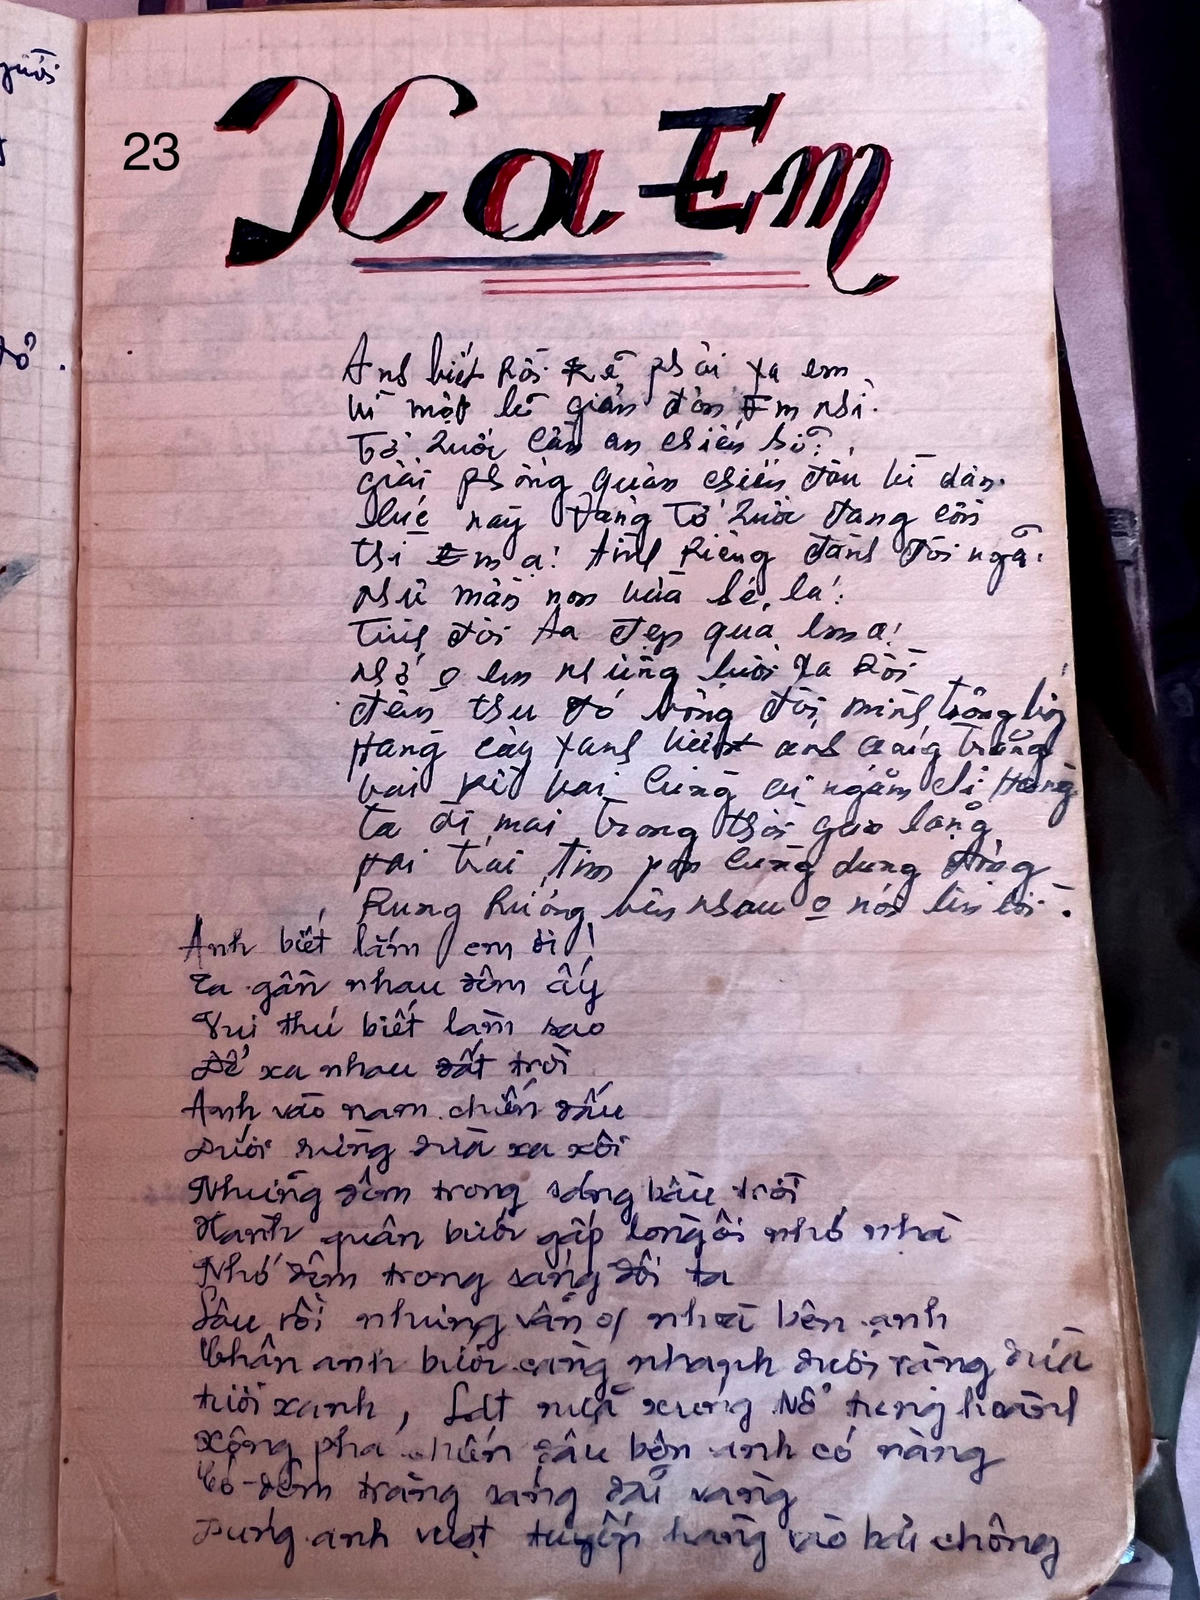 gười
23
Xa Em
Anh biết Rồi sẽ phải xa em
Vì một lẽ giản đơn Em nhỉ.
Tổ Quốc cần an chiến sĩ
giải phóng quân chiến đấu vì dân
Lúc này Đảng Tổ Quốc đang cần
thì Em ạ! Anh Riêng đành đôi ngã.
như mầm non vừa hé lá!
Tình đời ta đẹp quá em ạ!
nhớ em những buổi xa Rồi
đêm thu đó bóng đôi mình trông
Hàng cây xanh biết ánh trăng
vai kề vai cùng ai ngắm chị Hằng
ta đi mãi trong thôi gian lặng
hai trái tim cùng dung động
Rung Rưởng bên nhau nói lên lời.
Anh biết lắm em ơi!
Ta gần nhau đêm ấy
Vui thú biết làm sao
Để xa nhau đất trời
Anh vào nam chiến đấu
Dưới rừng dừa xa xôi
Những đêm trong sáng bầu trời
Hành quân bước gấp lòng ôi nhớ nhà
Nhớ đêm trong sáng đôi ta
Lâu rồi nhưng vẫn bên anh
Chân anh bước càng nhanh dưới rặng dừa
tươi xanh, Lất xuống Nổ tung
Xông pha chiến đấu bên anh có nàng
Có đêm trăng sáng vàng
Dung anh vượt tuyến hàng vào chông